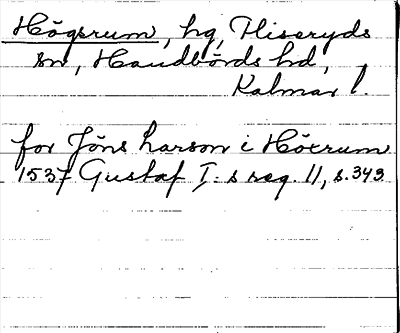 Högsrum, hg, Fliseryds
sn, Handbörds hd,
Kalmar l.
for Jöns Larson i Höcrum
1537 Gustaf I:s reg. 11, s. 343.